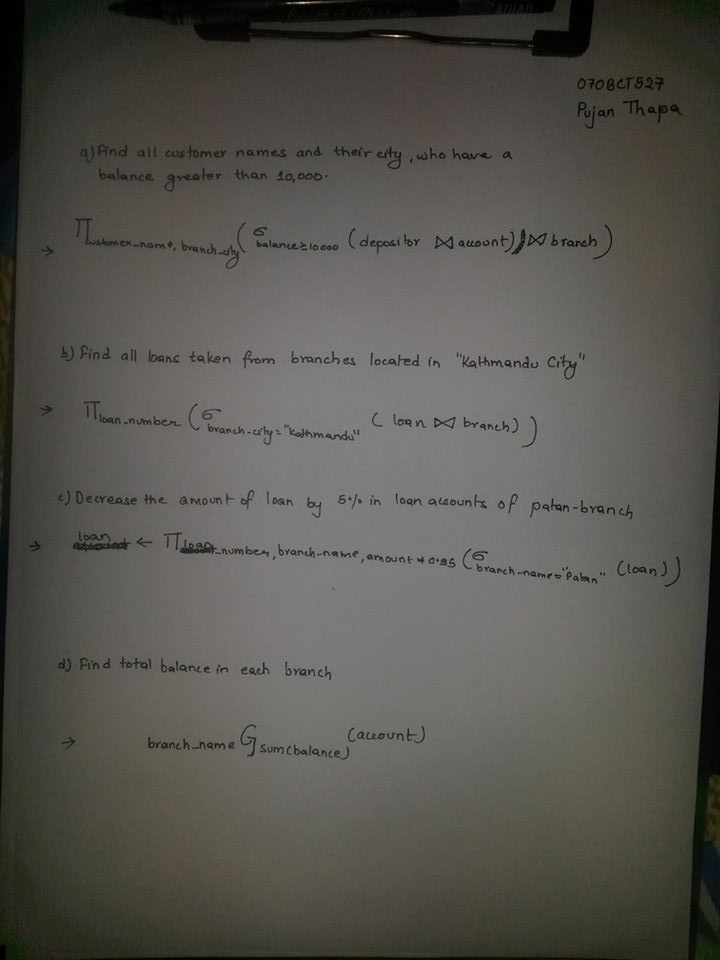 070BCT527
Pujan Thapa
a) Find all customer names and their city, who have a
balance greater than 10,000.
→ Π customer_name, branch_city ( σ balance ≥ 10000 (depositor ⋈ account) ⋈ branch )
b) Find all loans taken from branches located in "Kathmandu City"
→ Π loan_number ( σ branch-city = "Kathmandu" ( loan ⋈ branch ) )
c) Decrease the amount of loan by 5% in loan accounts of patan-branch
→ loan ← Π loan_number, branch-name, amount * 0.95 ( σ branch-name = "Patan" (loan) )
d) Find total balance in each branch
→ branch_name G sum(balance) (account)